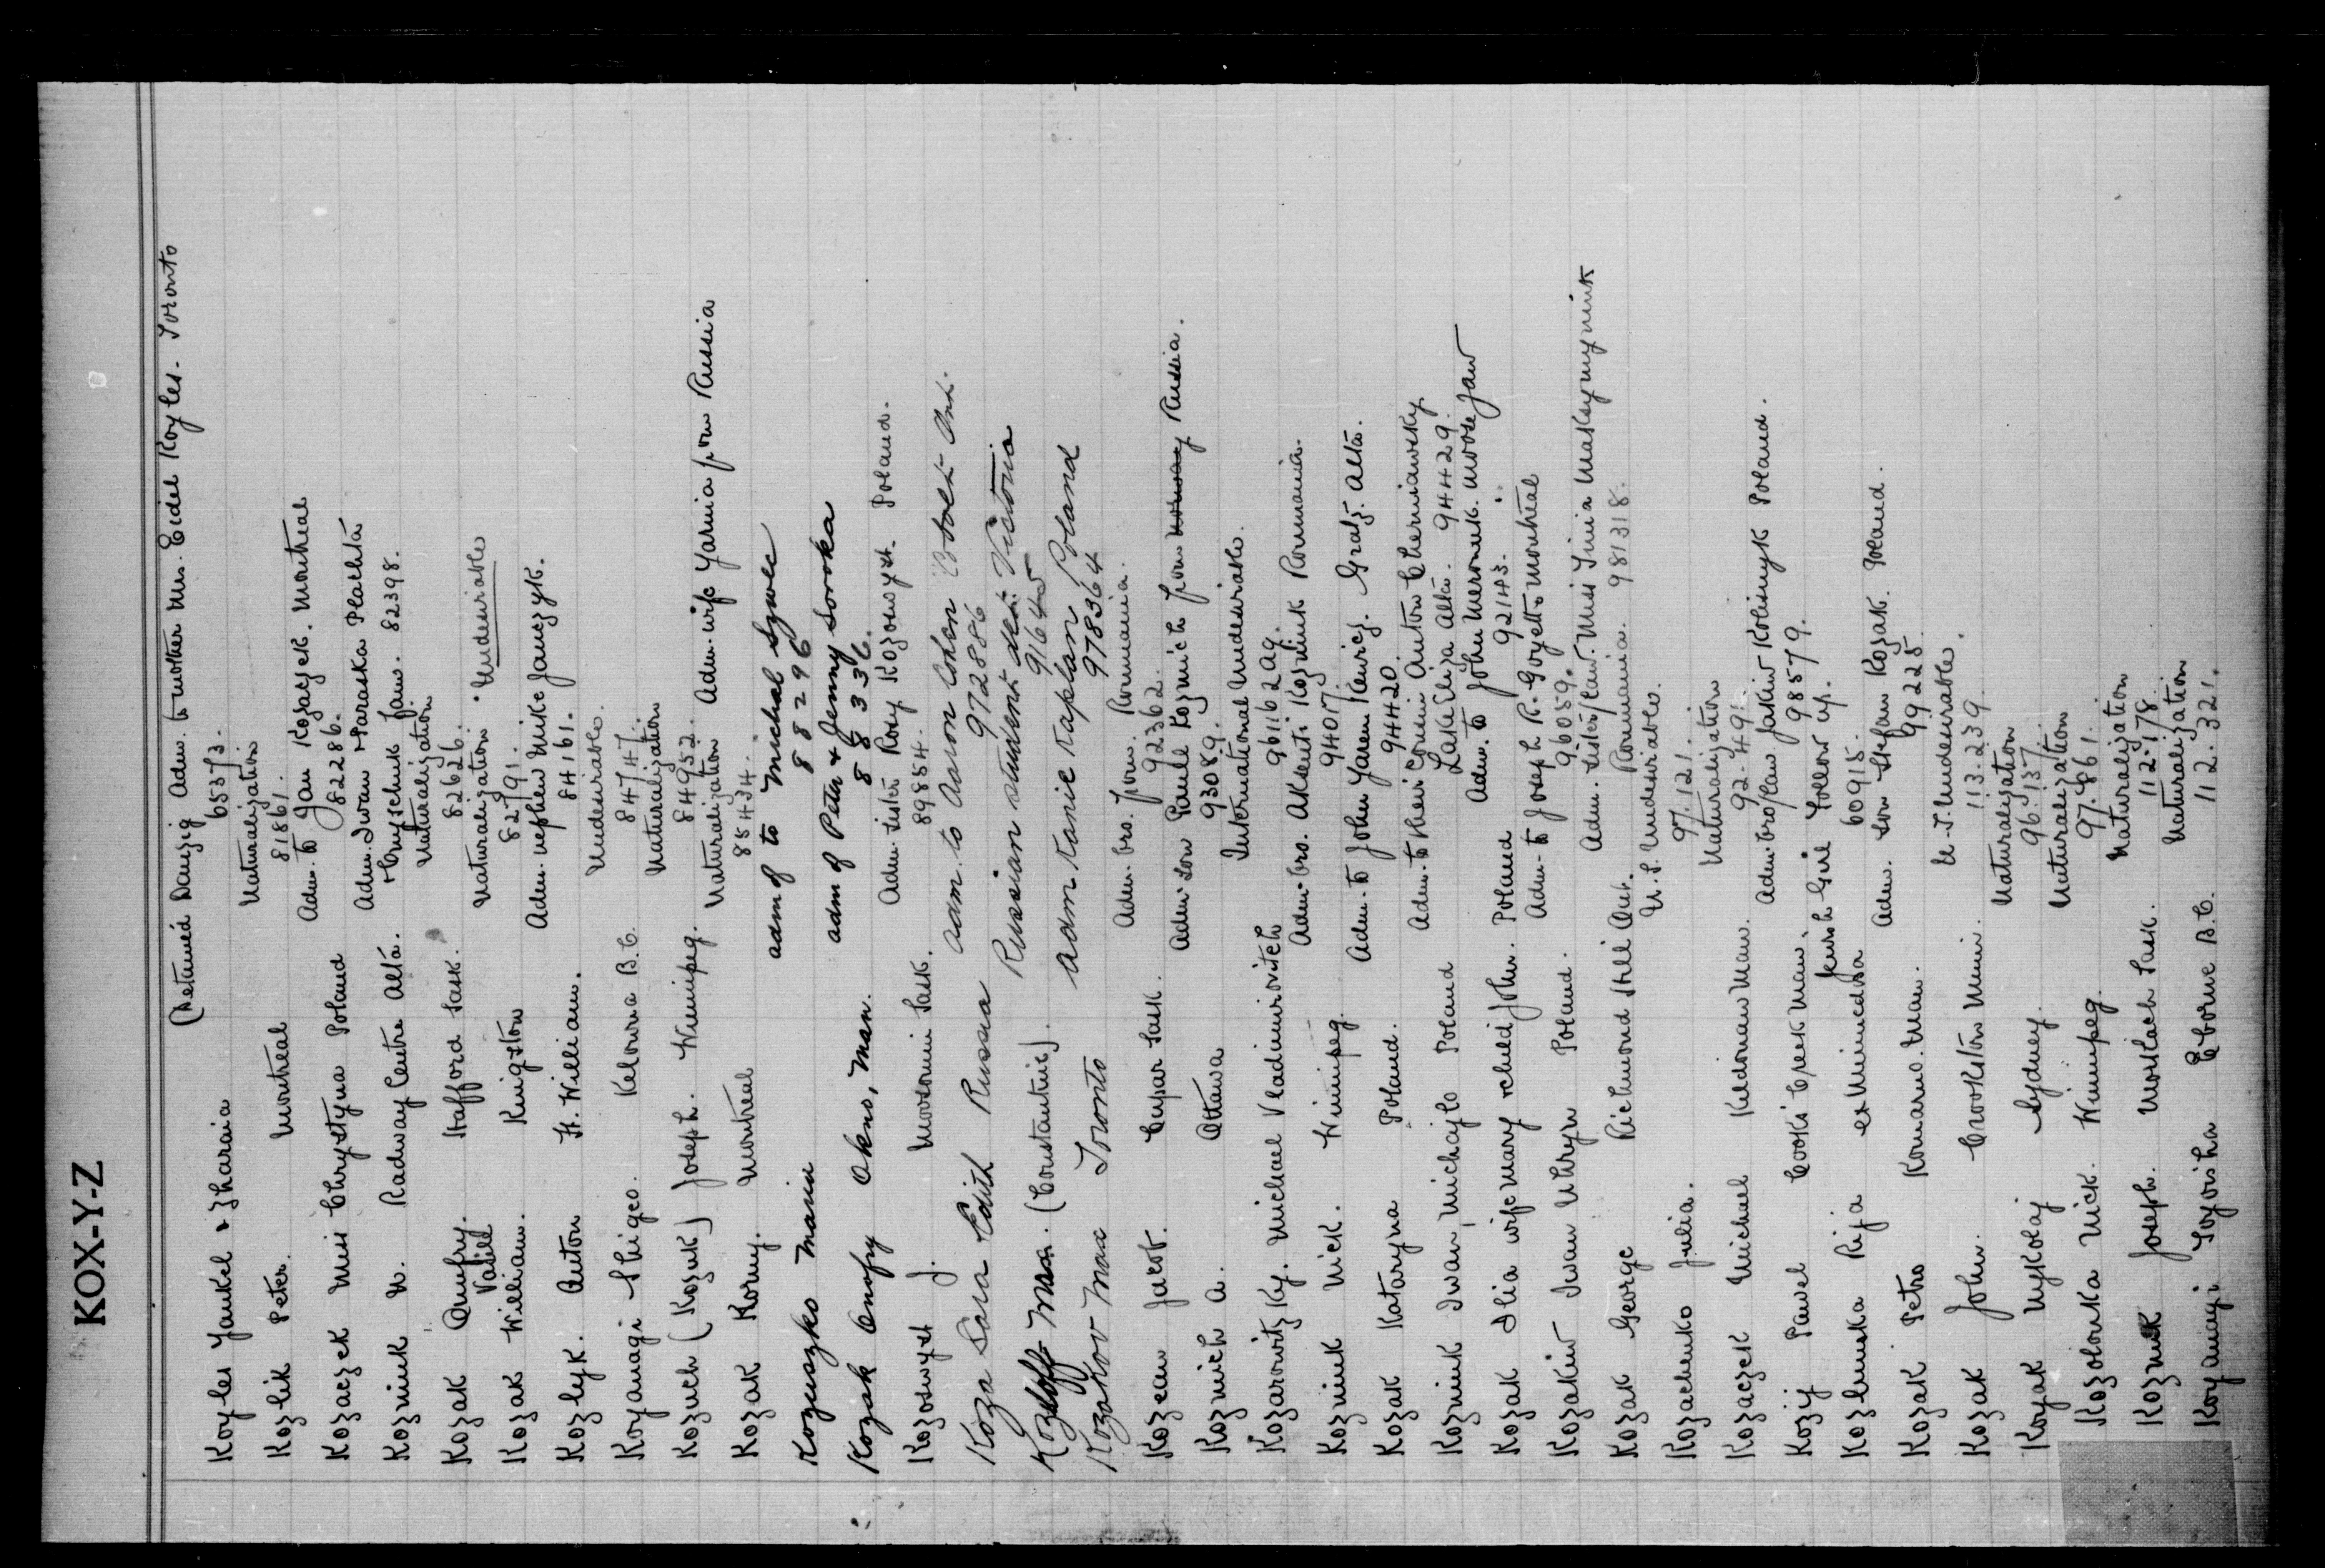 KOX-Y-Z
(Detained Danzig Adm. to mother Mrs. Eidel Koyles. Toronto
Koyles Yankel & Zharaia 65373.
Naturalization
Kozlik Peter. Montreal 81861.
Adm. to Jan Kozaczek. Montreal
Kozaczek Miss Chrystyna Poland 82286.
Adm. Iwan & Paraska Plachta
Kozniuk N. Radway Centre Alta. & Fam. 82398.
Naturalization
Kozak Onufry. Hafford Sask. 82626.
Vasill Naturalization. Undesirable
Kozak William. Kingston 82791.
Adm. nephew Mike Janczyk.
Kozlyk. Anton Ft. William. 84161.
Undesirable.
Koyanagi Shigeo. Kelowna B.C. 84747.
Naturalization
Kozuch (Kozuk) Joseph. Winnipeg. 84952.
Naturalization Adm. wife Yarina from Russia
Kozak Korny. Montreal 85434.
adm of to Michal Szwec
Kozuszko Maria 88296
adm of Peter & Jenny Soroka
Kozak Onofry Okno, Man. 88336.
Adm. sister Rosy Kozowyst. Poland.
Kozowyst J. Moosomin Sask. 89854.
Adm. to Aaron Cohen Cobalt Ont.
Koza Sara Edith Russia 972886
Russian student dett. Victoria
Kozloff Max. (Constantine). 91645
adm Kanie Kaplan Poland
Kozakov Max Toronto 978364
Adm. bro. from. Roumania.
Kozean Jacob. Cupar Sask. 92362.
Adm. son Paull Kozmich from Norway Russia.
Kozmich A. Ottawa 93089.
International Undesirable.
Kozarowitzky. Michael Vladimirovitch 961162 ag.
Adm. bro. Akkenti Kozniuk Roumania.
Kozniuk Nick. Winnipeg. 94017.
Adm. to John Yarem Kewicz. Gratz. Alta.
Kozak Kataryna Poland. 94420.
Adm. to their cousin Anton Cherniawsky
Kozniuk Iwan, Michajlo Poland Lake Eliza Alta. 94429.
Adm. to John Meroniuk. Moose Jaw
Kozak Ilia wife Mary & child John. Poland 92143.
Adm. to Joseph R. Goyette Montreal
Kozakiw Iwan Uhryn Poland. 96059.
Adm. sister/law. Miss Irinia Maksymyniuk
Kozak George Richmond Hill Ont. Roumania. 981318.
U.S. Undesirable.
Kozachenko Julia. 97.121.
Naturalization
Kozaczek Michael Kildonan Man. 92.491.
Adm. bro/law Jakiw Kolisnyk Poland.
Kozij Pawel Cooks Creek Man. 98579.
Jewish Girl Follow up.
Kozlinska Rija ex Minnedosa 60915.
Adm. son Stefan Kozak. Poland.
Kozak Petro Komarno. Man. 99225.
U.S. Undesirable.
Kozak John. Crookston Minn. 113.239.
Naturalization
Koyak Mykolaj Sydney. 96.137.
Naturalization
Kozolonka Nick. Winnipeg. 97.861.
Naturalization
Kozniuk Joseph. Mortlach Sask. 112.178.
Naturalization
Koyanagi Toyoisha Eburne B.C. 112.321.